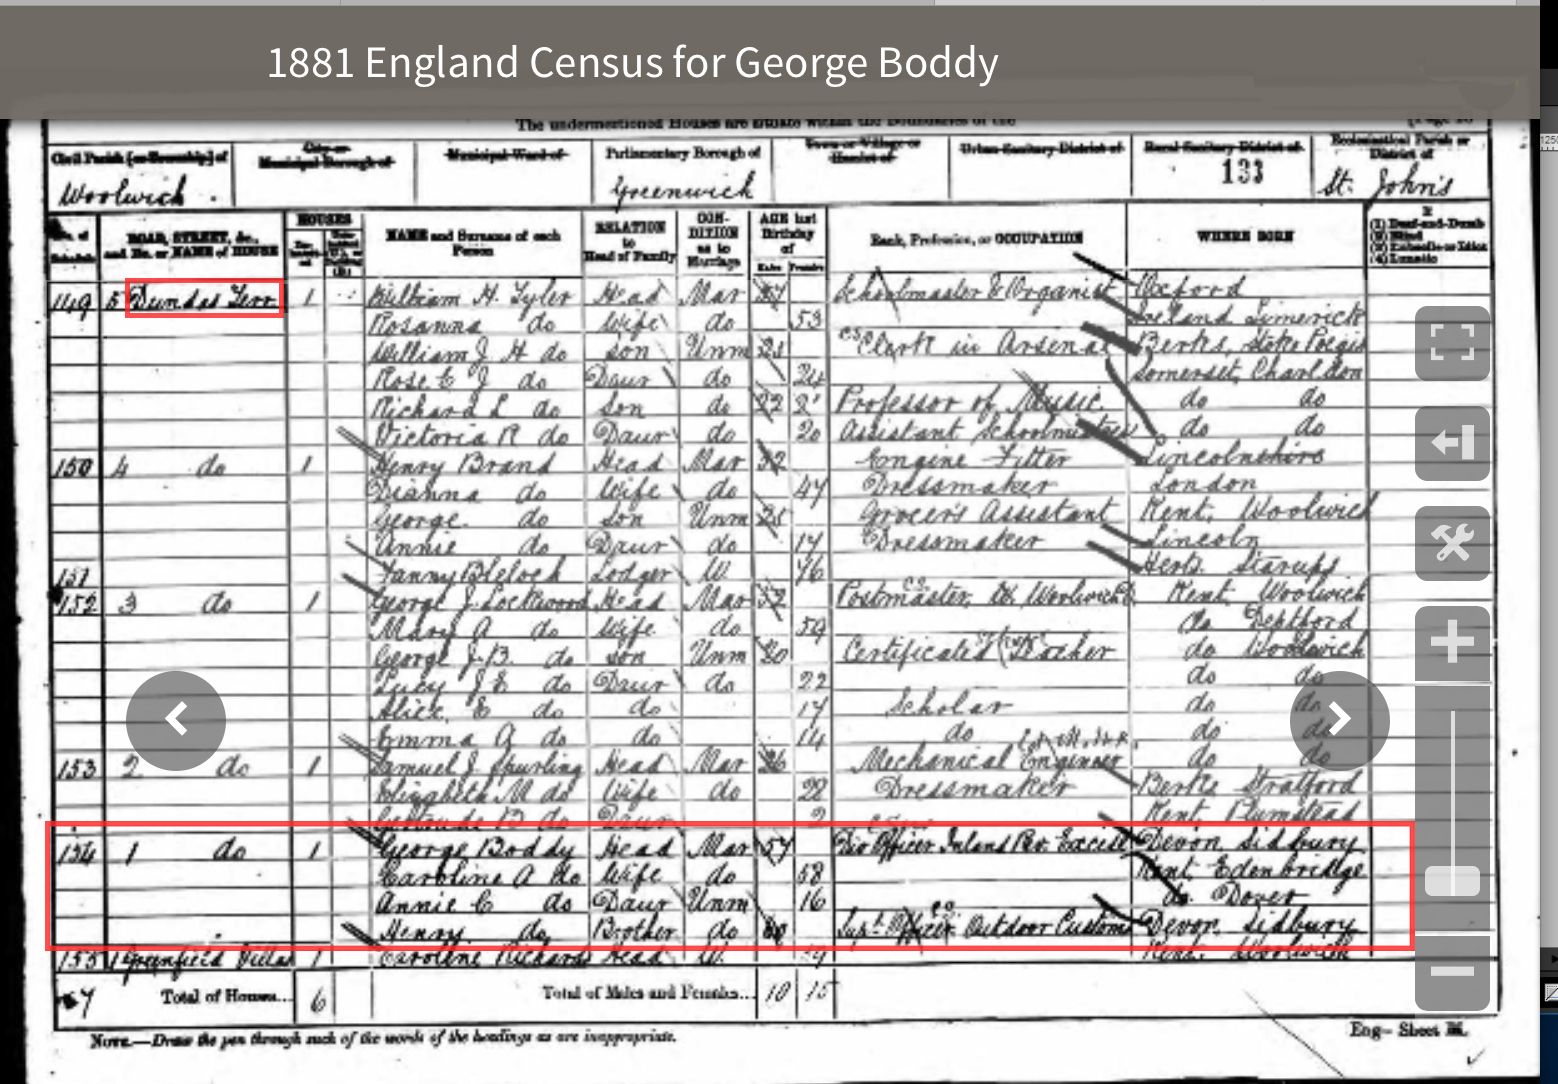 1881 England Census for George Boddy
The undermentioned Houses are situate within the Boundaries of the
Civil Parish [or Township] of City or Municipal Borough of Municipal Ward of Parliamentary Borough of Town or Village or Hamlet of Urban Sanitary District of Rural Sanitary District of Ecclesiastical Parish or District of
Woolwich Greenwich 133 St. John's
No. of Schedule ROAD, STREET, &c., and No. or NAME of HOUSE HOUSES NAME and Surname of each Person RELATION to Head of Family CONDITION as to Marriage AGE last Birthday of Males Females Rank, Profession, or OCCUPATION WHERE BORN
(1) Deaf-and-Dumb
(2) Blind
(3) Imbecile or Idiot
(4) Lunatic
149 5 Dundas Terr 1 William H. Tyler Head Mar Schoolmaster & Organist Oxford
Rosanna do Wife do 53 Ireland Limerick
William J H do son Unm 21 Clerk in Arsenal Berks, Stoke Pogis
Rose E J do Daur do 24 Somerset, Charldon
Richard L do Son do 22 Professor of Music do do
Victoria R do Daur do 20 Assistant Schoolmistress do do
150 4 do 1 Henry Brand Head Mar 52 Engine Fitter Lincolnshire
Dianna do Wife do 47 Dressmaker London
George do son Unm 25 Grocer's Assistant Kent, Woolwich
Annie do Daur do 17 Dressmaker Lincoln
151 Fanny Lodger W. 76 Herts
152 3 do 1 George J. Lockwood Head Mar 57 Postmaster, Woolwich Kent Woolwich
Mary A do Wife do 59 do Deptford
George J. B. do son Unm 20 Certificated Teacher do Woolwich
Lucy J E do Daur do 22 do do
Alice E do do 17 Scholar do do
Emma A do do 14 do do do
153 2 do 1 Samuel J. Spurling Head Mar 26 Mechanical Engineer do do
Elizabeth M do Wife do 28 Dressmaker Berks Stratford
Gertrude B do Daur 2 Kent Plumstead
154 1 do 1 George Boddy Head Mar 57 Officer Inland Rev. Excise Devon Sidbury
Caroline A do Wife do 58 Kent Edenbridge
Annie C do Daur Unm 16 do Dover
Henry do Brother do 60 Supt. Officer Outdoor Customs Devon Sidbury
155 1 Greenfield Villas 1 Caroline Richards Head W. Kent, Woolwich
Total of Houses... 6 Total of Males and Females... 10 15
NOTE.—Draw the pen through such of the words of the headings as are inappropriate.
Eng— Sheet